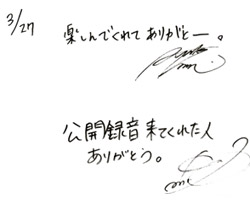 3/27
楽しんでくれてありがとー。
公開録音来てくれた人
ありがとう。